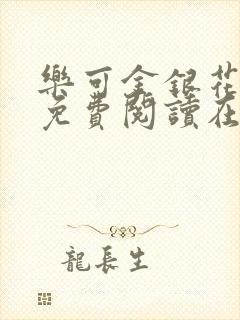 樂可金銀花
免費閱讀在
龍長生